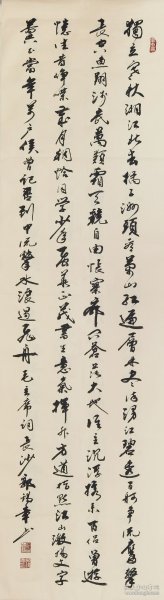 獨立寒秋湘江北去橘子洲頭看萬山紅遍層林尽染漫江碧透百舸争流鹰擊
長空魚翔浅底萬類霜天競自由怅寥廓问蒼茫大地谁主沉浮携来百侣曾遊
憶往昔峥嵘歲月稠恰同学少年風華正茂書生意氣揮斥方遒指點江山激揚文字
糞土當年萬户侯曾記否到中流擊水浪遏飛舟毛主席詞長沙